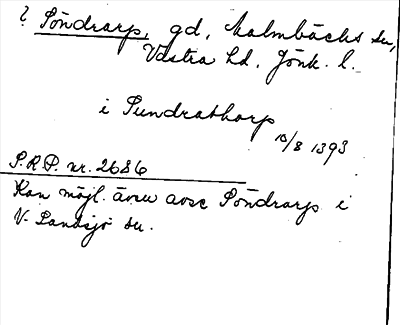 ? Söndrarp, gd, Malmbäcks sn,
Västra hd. Jönk. l.
i Sundrathorp
10/8 1393
S.R.P. nr. 2686
Kan möjl. även avse Söndrarp i
V. Sandsjö sn.